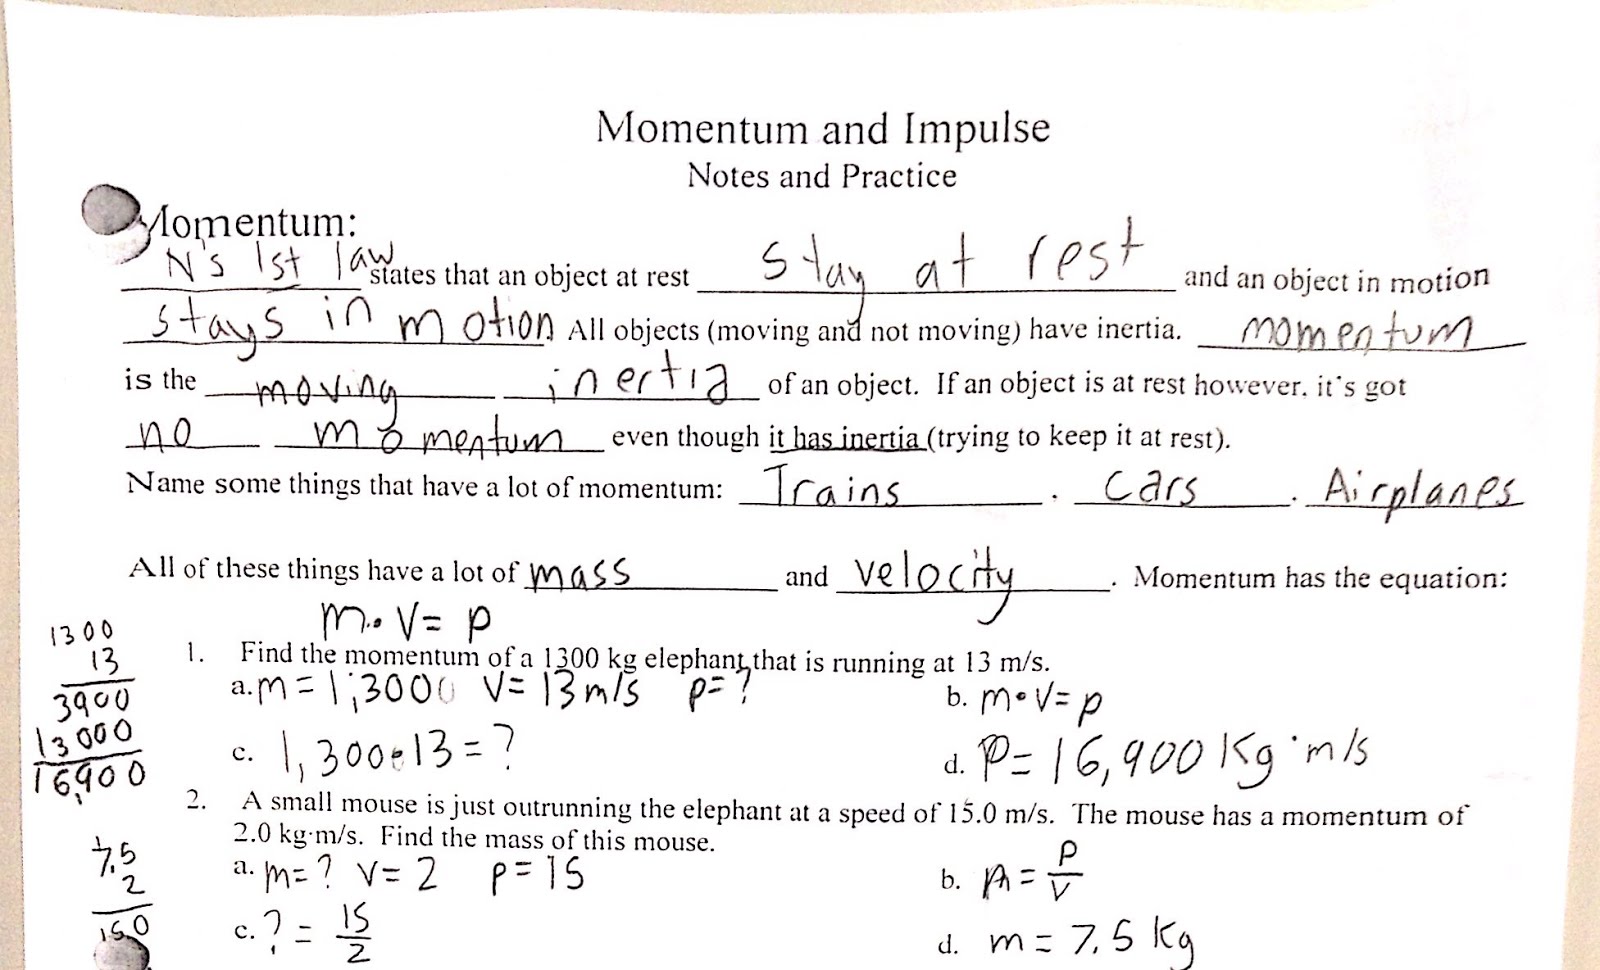 Momentum and Impulse
Notes and Practice
Momentum:
N's 1st law states that an object at rest stay at rest and an object in motion
stays in motion. All objects (moving and not moving) have inertia. momentum
is the moving inertia of an object. If an object is at rest however, it's got
no momentum even though it has inertia (trying to keep it at rest).
Name some things that have a lot of momentum: Trains . cars . Airplanes
All of these things have a lot of mass and velocity . Momentum has the equation:
m • v = p
1. Find the momentum of a 1300 kg elephant that is running at 13 m/s.
a. m = 1,300 v = 13 m/s p = ?
b. m • v = p
c. 1,300 • 13 = ?
d. P = 16,900 Kg · m/s
1300
13
3900
13000
16,900
2. A small mouse is just outrunning the elephant at a speed of 15.0 m/s. The mouse has a momentum of
2.0 kg·m/s. Find the mass of this mouse.
a. m = ? v = 2 p = 15
b. m = p/v
c. ? = 15/2
d. m = 7.5 Kg
7.5
2
15.0